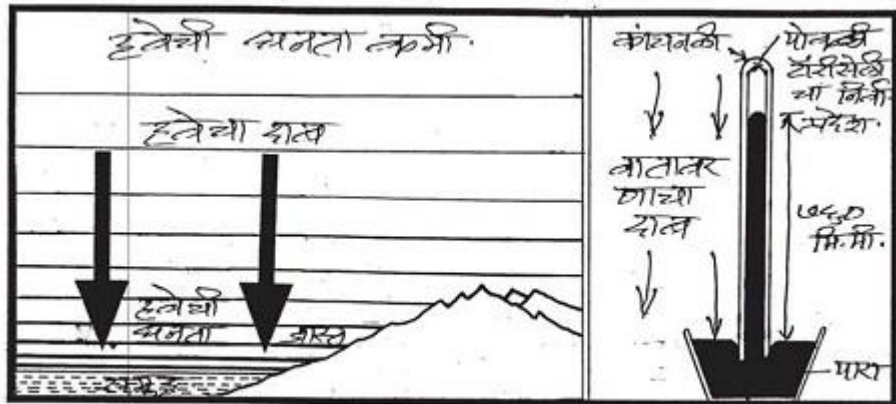 हवेची घनता कमी.
हवेचा दाब
हवेची
घनता जास्त
समुद्र
कांचनळी
पोकळी
टॉरीसेली
चा निर्वात
प्रदेश.
वातावर
णाचा
दाब
७६०
मि.मी.
पारा